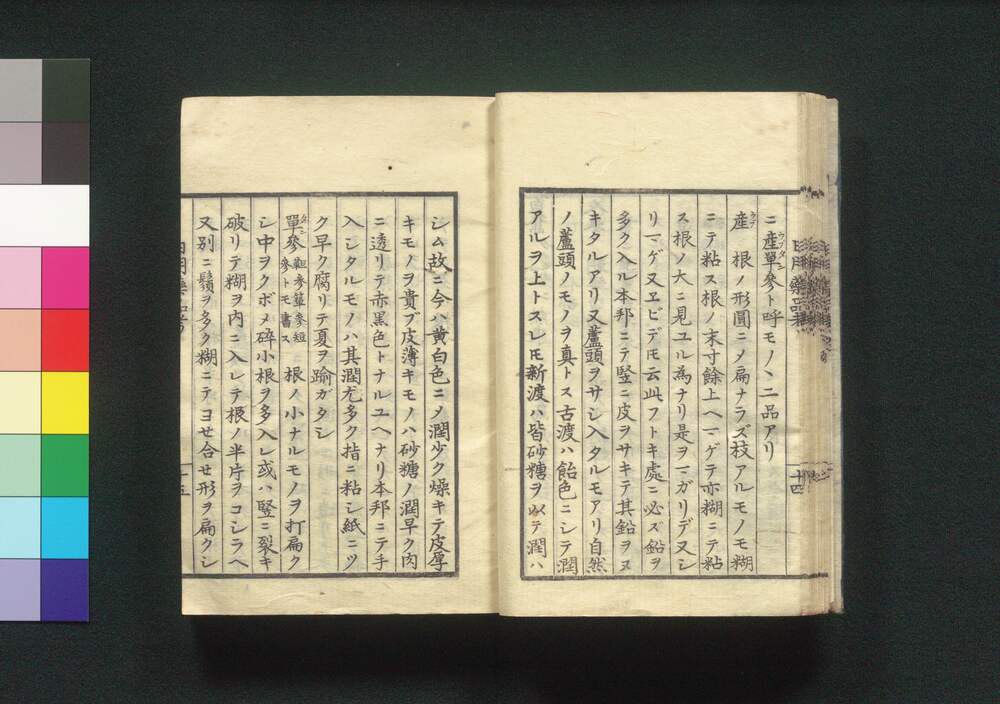 ニ產單參ト呼モノヽ二品アリ
產 根ノ形圓ニメ扁ナラズ枝アルモノモ糊
ニテ粘ス根ノ末寸餘上ヘマゲテ亦糊ニテ粘
ス根ノ大ニ見ユル為ナリ是ヲマガリデ又シ
リマゲ又ヱビデ𪜈云此フトキ處ニ必ズ鉛ヲ
多ク入ル本邦ニテ竪ニ皮ヲサキテ其鉛ヲヌ
キタルアリ又蘆頭ヲサシ入タルモアリ自然
ノ蘆頭ノモノヲ真トス古渡ハ飴色ニシテ潤
アルヲ上トスレ𪜈新渡ハ皆砂糖ヲ以テ潤ハ
十四
シム故ニ今ハ黄白色ニメ潤少ク燥キテ皮厚
キモノヲ貴ブ皮薄キモノハ砂糖ノ潤早ク肉
ニ透リテ赤黒色トナルユヘナリ本邦ニテ手
入シタルモノハ其潤尤多ク指ニ粘シ紙ニツ
ク早ク腐リテ夏ヲ踰ガタシ
單參 觛參簞參短參トモ書ス 根ノ小ナルモノヲ打扁ク
シ中ヲクボメ碎小根ヲ多入レ或ハ竪ニ裂キ
破リテ糊ヲ内ニ入レテ根ノ半片ヲコシラヘ
又別ニ鬚ヲ多ク糊ニテヨセ合セ形ヲ扁クシ
十五